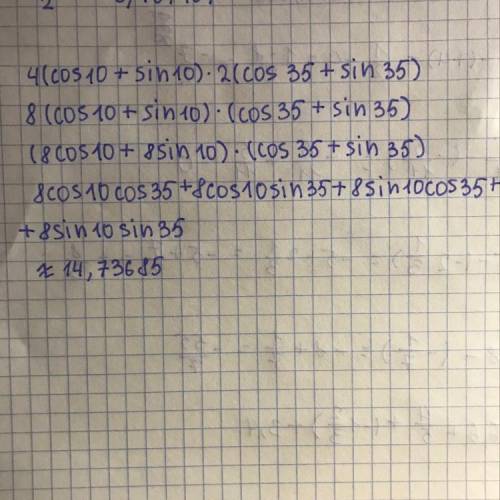 4(cos10 + sin10)·2(cos 35 + sin 35)
8(cos10 + sin10)·(cos 35 + sin 35)
(8cos10 + 8sin10)·(cos 35 + sin 35)
8cos10cos35+8cos10sin35+8sin10cos35+
+8sin10sin35
≈ 14,73685